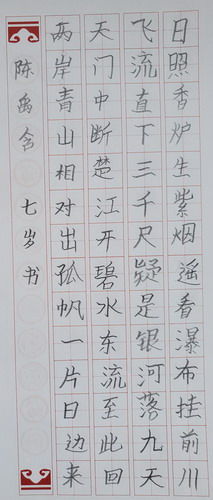 日照香炉生紫烟遥看瀑布挂前川
飞流直下三千尺疑是银河落九天
天门中断楚江开碧水东流至此回
两岸青山相对出孤帆一片日边来
陈禹含 七岁书